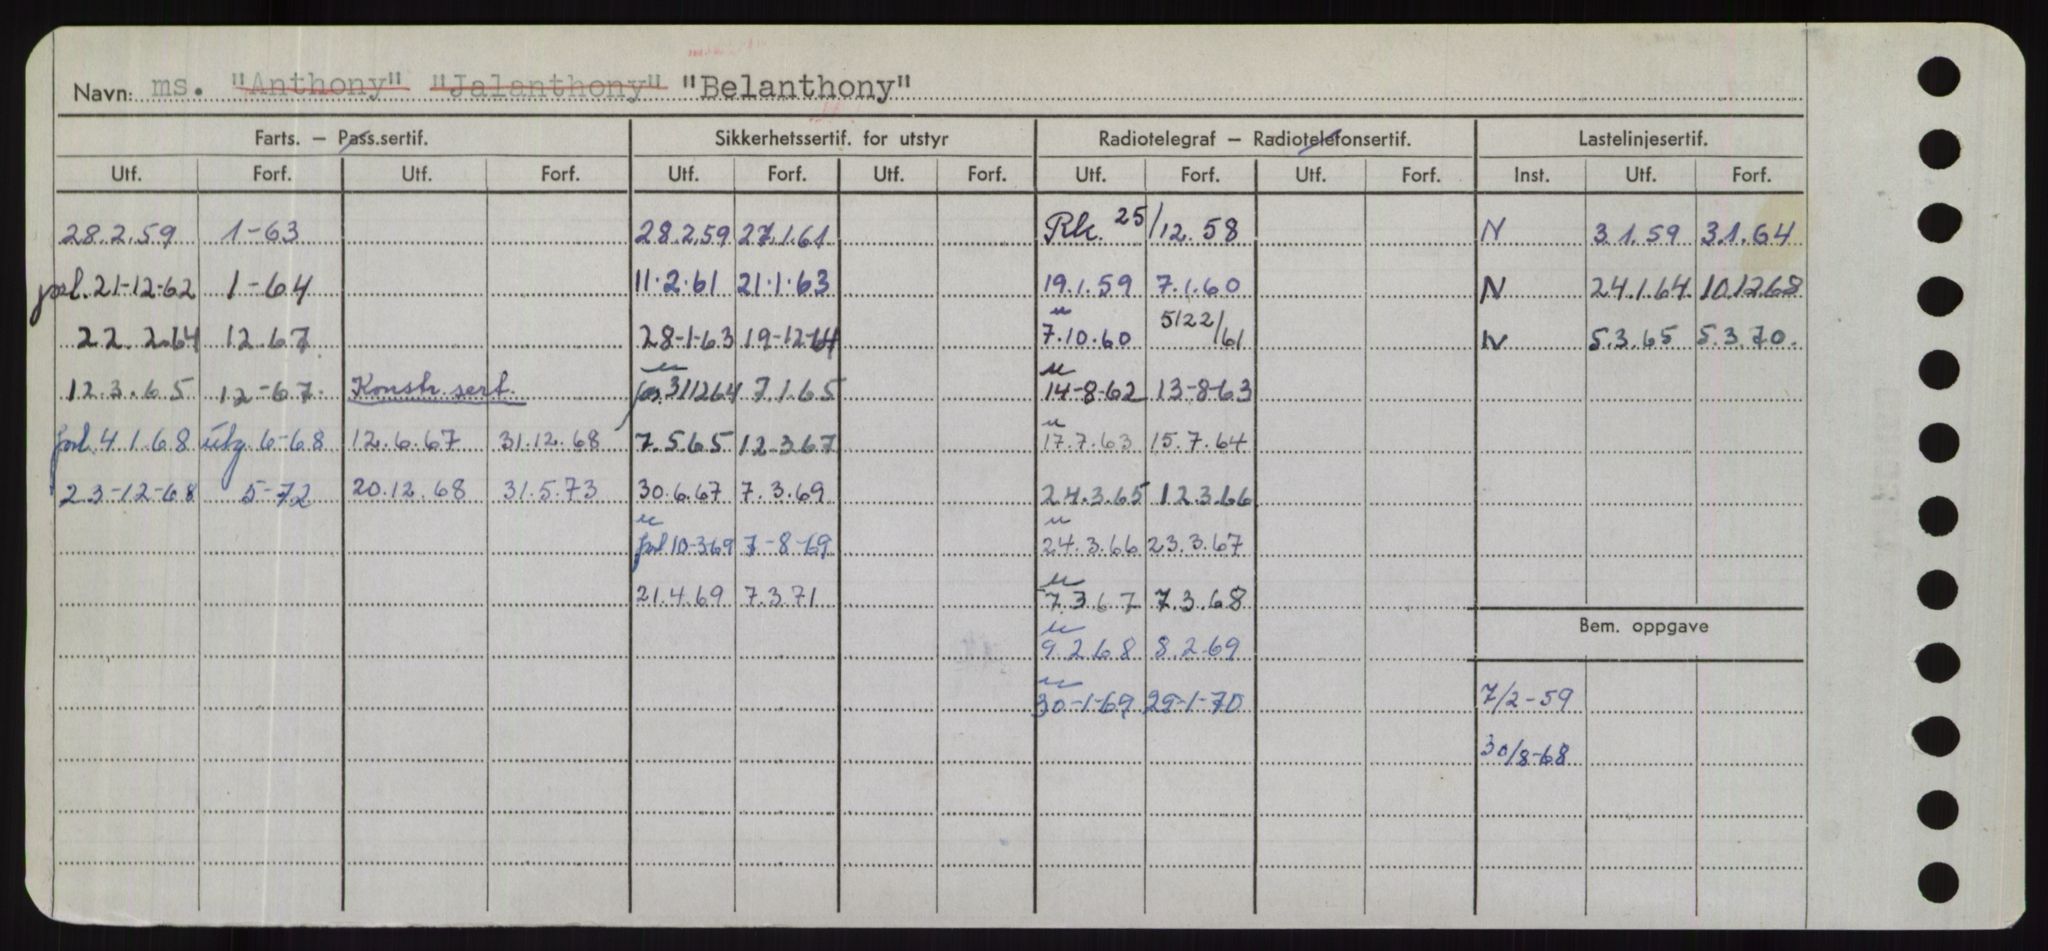 Navn: ms. "Anthony" "Jalanthony" "Belanthony"
Farts. — Pass.sertif. Sikkerhetssertif. for utstyr Radiotelegraf — Radiotelefonsertif. Lastelinjesertif.
Utf. Forf. Utf. Forf. Utf. Forf. Utf. Forf. Utf. Forf. Utf. Forf. Inst. Utf. Forf.
28.2.59 1-63 28.2.59 27.1.61 Rk. 25/12.58 N 3.1.59 3.1.64
forl. 21-12-62 1-64 11.2.61 21.1.63 19.1.59 7.1.60 N 24.1.64 10.12.68
22.2.64 12.67 28-1-63 19-12-64 7.10.60 N 5.3.65 5.3.70.
12.3.65 12-67. Konstr. sert. 311264 7.1.65 14-8-62 13-8-63
forl. 4.1.68 utg. 6-68 12.6.67 31.12.68 7.5.65 12.3.67 17.7.63 15.7.64
23-12-68 5-72 20.12.68 31.5.73 30.6.67 7.3.69 24.3.65 12.3.66
forl 10-3-69 7-8-69 24.3.66 23.3.67
21.4.69 7.3.71 7.3.67 7.3.68
Bem. oppgave
9.2.68 8.2.69
30-1-69 29-1-70 7/2-59
30/8-68